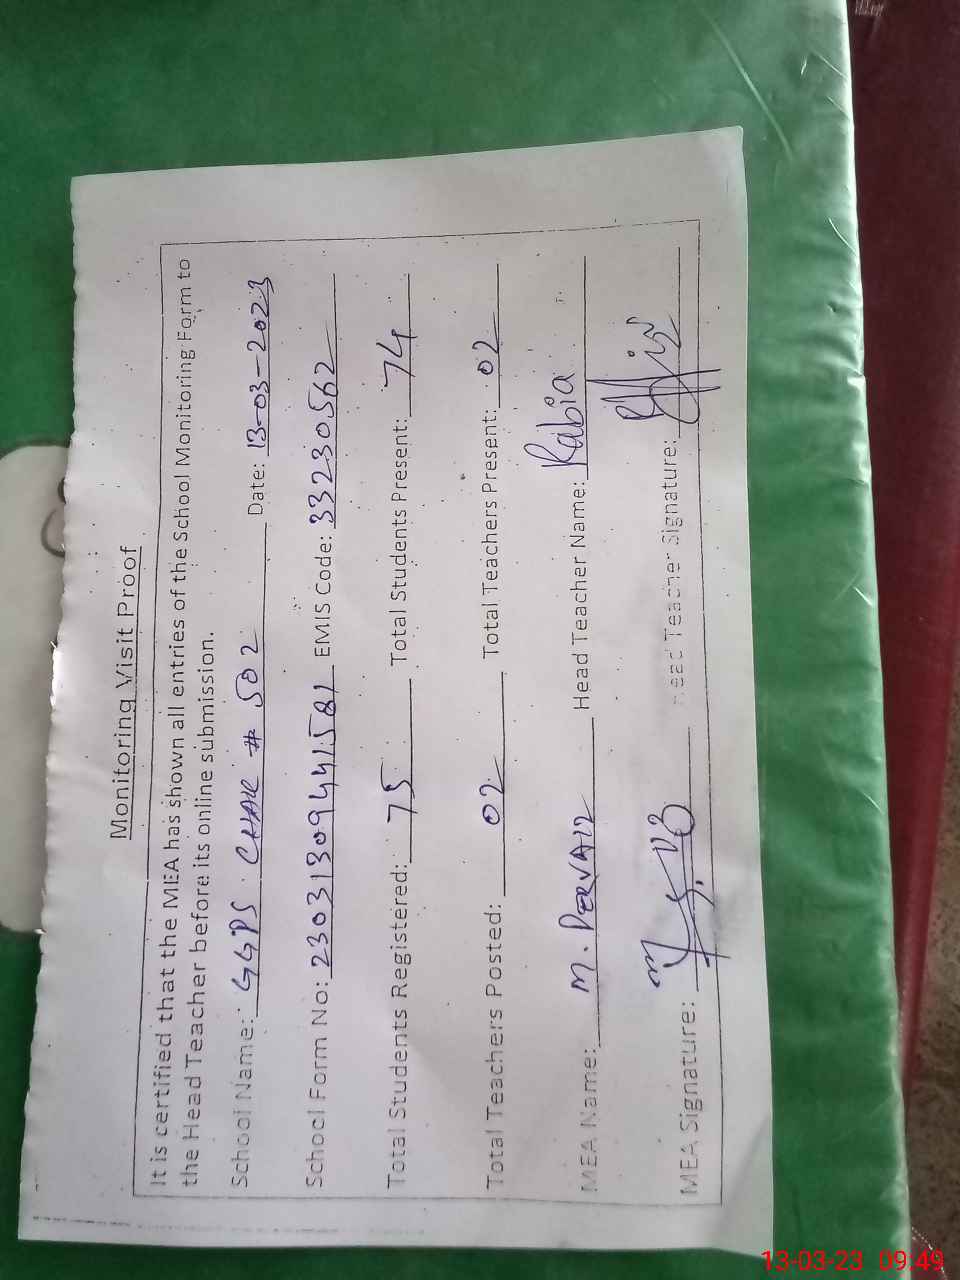 Monitoring Visit Proof
It is certified that the MEA has shown all entries of the School Monitoring Form to
the Head Teacher before its online submission.
School Name: GGPS. CHAK # 502 Date: 13-03-2023
School Form No: 23031309441581 EMIS Code: 33230562
Total Students Registered: 75 Total Students Present: 74
Total Teachers Posted: 02 Total Teachers Present: 02
MEA Name: M. PERVAIZ Head Teacher Name: Rabia
MEA Signature: Head Teacher Signature:
13-03-23 09:49